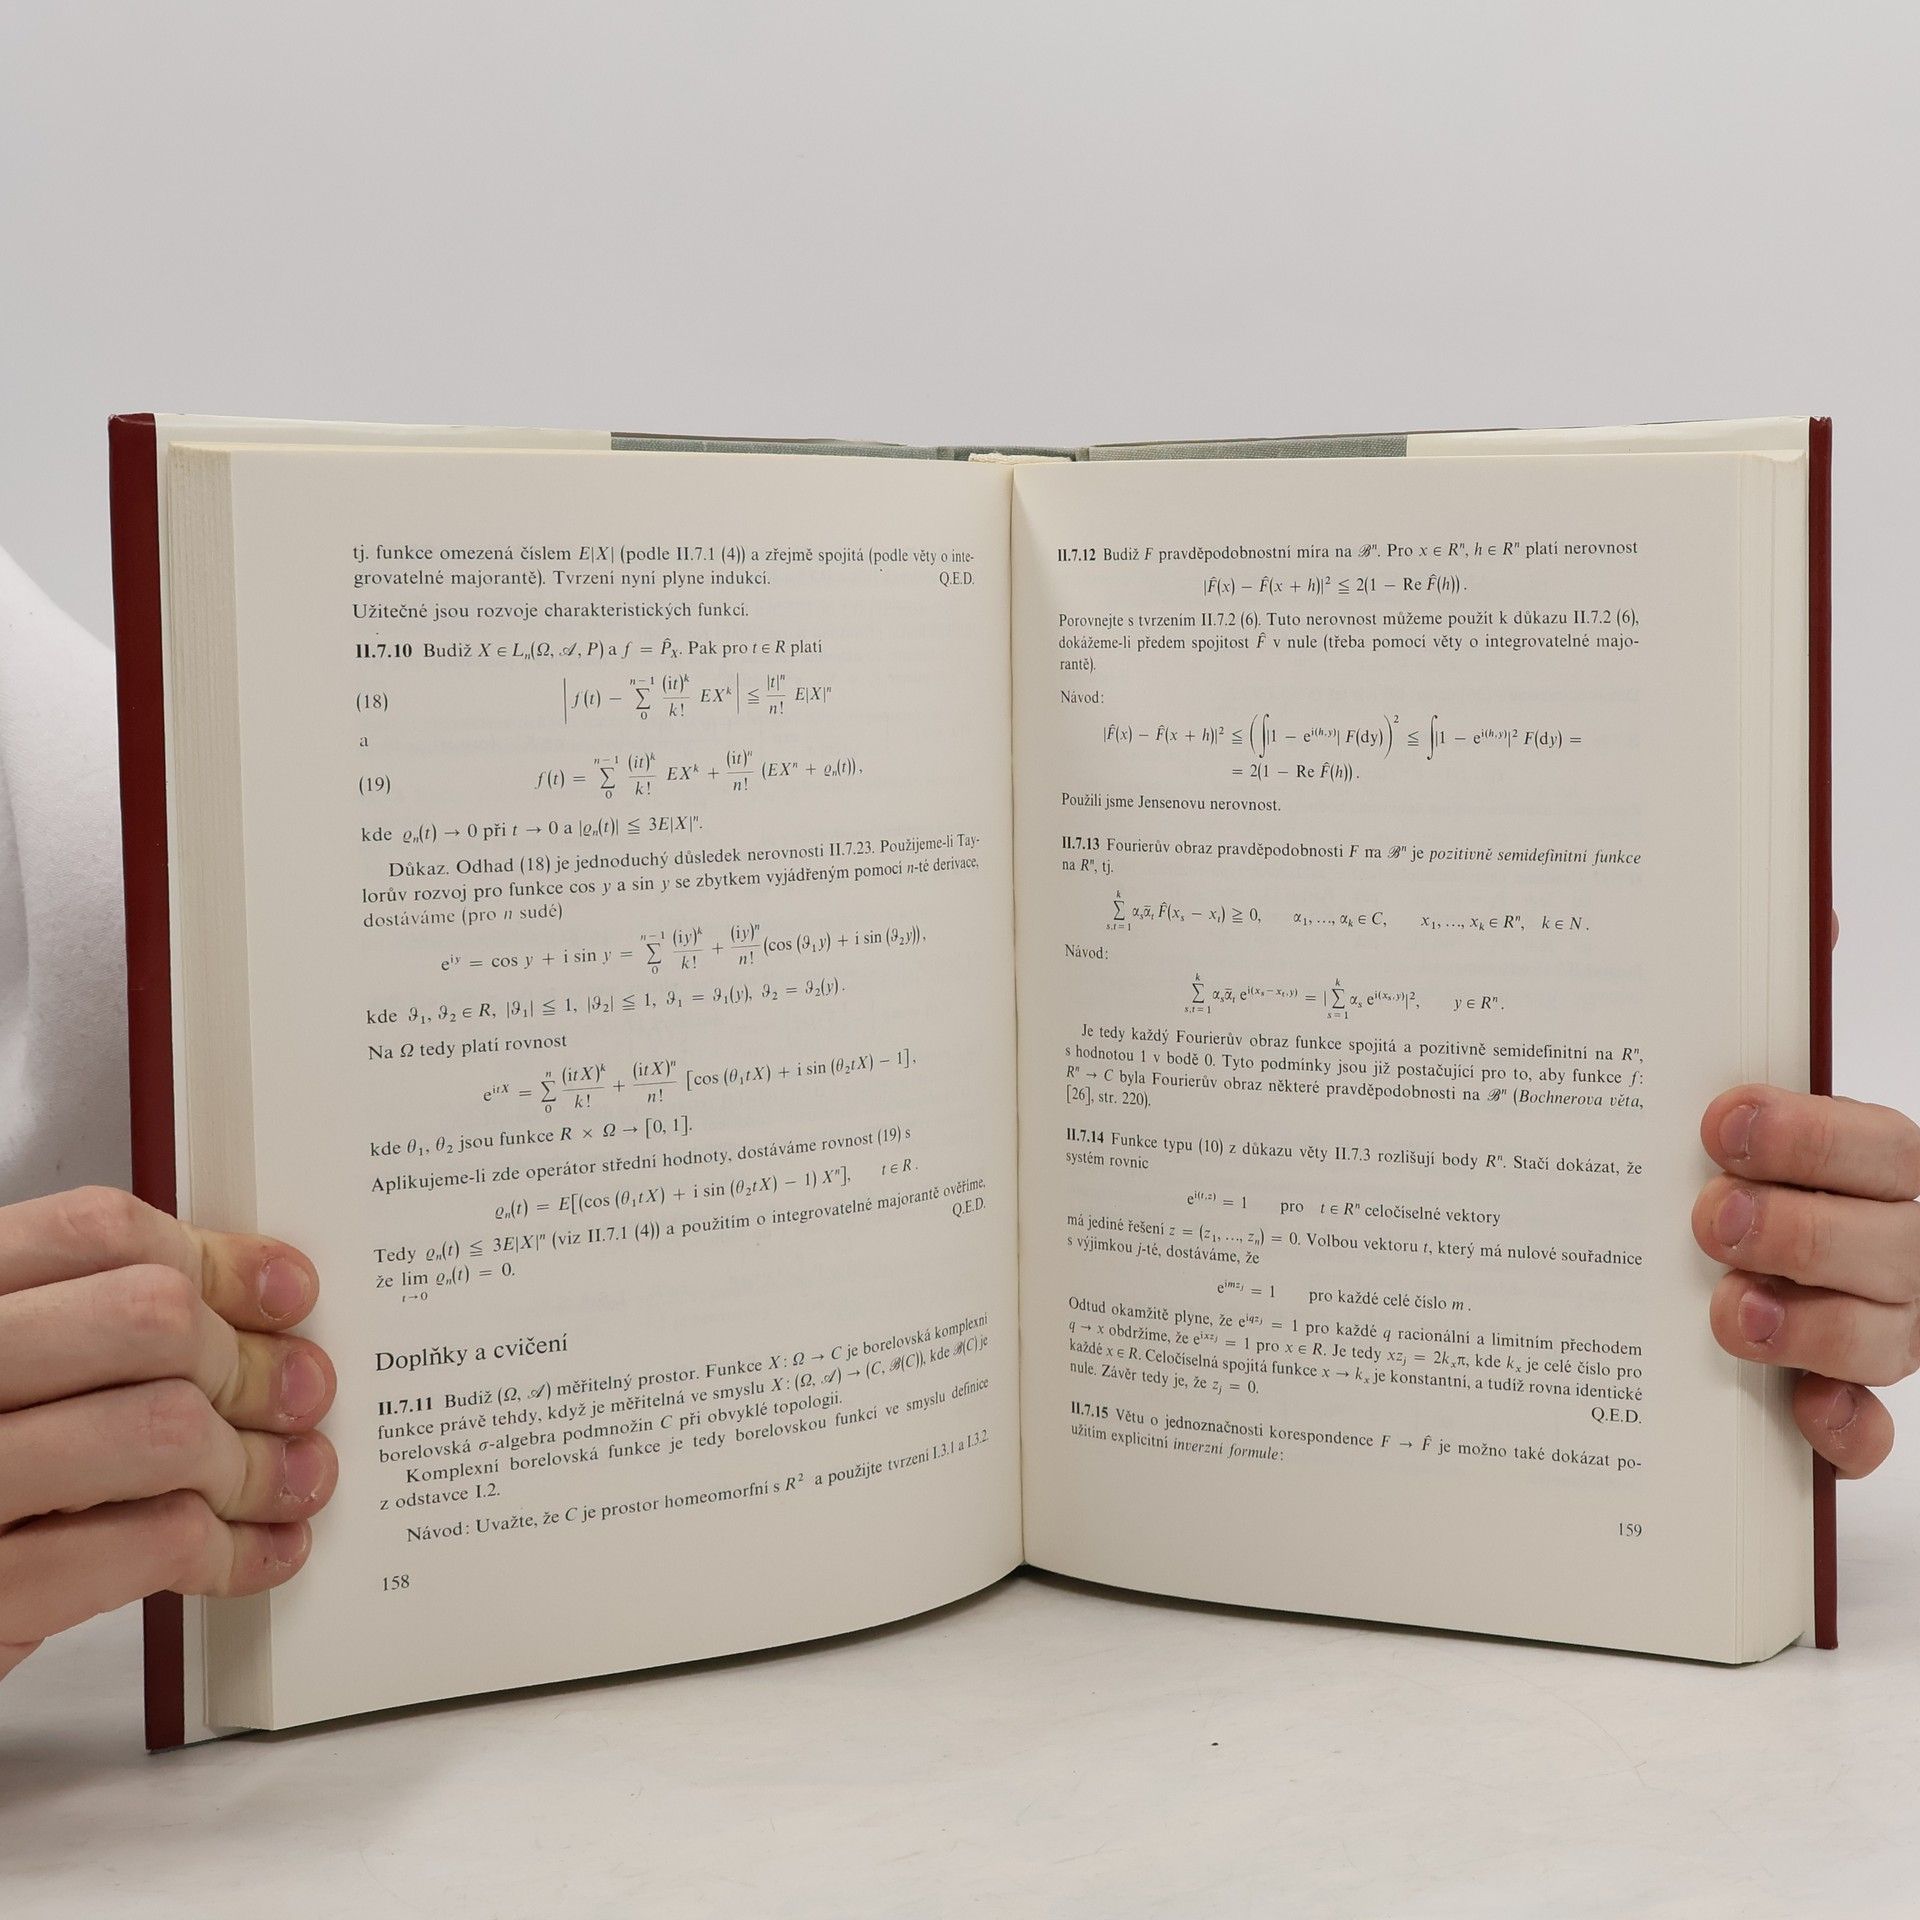 tj. funkce omezená číslem E|X| (podle II.7.1 (4)) a zřejmě spojitá (podle věty o inte-
grovatelné majorantě). Tvrzení nyní plyne indukcí. Q.E.D.
Užitečné jsou rozvoje charakteristických funkcí.
II.7.10 Budiž X ∈ Lₙ(Ω, 𝒜, P) a f = P̂_X. Pak pro t ∈ R platí
(18) |f(t) − ∑₀ⁿ⁻¹ (it)ᵏ/k! EXᵏ| ≦ |t|ⁿ/n! E|X|ⁿ
a
(19) f(t) = ∑₀ⁿ⁻¹ (it)ᵏ/k! EXᵏ + (it)ⁿ/n! (EXⁿ + ϱₙ(t)),
kde ϱₙ(t) → 0 při t → 0 a |ϱₙ(t)| ≦ 3E|X|ⁿ.
Důkaz. Odhad (18) je jednoduchý důsledek nerovnosti II.7.23. Použijeme-li Tay-
lorův rozvoj pro funkce cos y a sin y se zbytkem vyjádřeným pomocí n-té derivace,
dostáváme (pro n sudé)
eⁱʸ = cos y + i sin y = ∑₀ⁿ⁻¹ (iy)ᵏ/k! + (iy)ⁿ/n! (cos (ϑ₁y) + i sin (ϑ₂y)),
kde ϑ₁, ϑ₂ ∈ R, |ϑ₁| ≦ 1, |ϑ₂| ≦ 1, ϑ₁ = ϑ₁(y), ϑ₂ = ϑ₂(y).
Na Ω tedy platí rovnost
e^{itX} = ∑₀ⁿ (itX)ᵏ/k! + (itX)ⁿ/n! [cos (θ₁tX) + i sin (θ₂tX) − 1],
kde θ₁, θ₂ jsou funkce R × Ω → [0, 1].
Aplikujeme-li zde operátor střední hodnoty, dostáváme rovnost (19) s
ϱₙ(t) = E[(cos (θ₁tX) + i sin (θ₂tX) − 1) Xⁿ], t ∈ R.
Tedy ϱₙ(t) ≦ 3E|X|ⁿ (viz II.7.1 (4)) a použitím o integrovatelné majorantě ověříme,
že lim ϱₙ(t) = 0. Q.E.D.
t→0
Doplňky a cvičení
II.7.11 Budiž (Ω, 𝒜) měřitelný prostor. Funkce X: Ω → C je borelovská komplexní
funkce právě tehdy, když je měřitelná ve smyslu X: (Ω, 𝒜) → (C, ℬ(C)), kde ℬ(C) je
borelovská σ-algebra podmnožin C při obvyklé topologii.
Komplexní borelovská funkce je tedy borelovskou funkcí ve smyslu definice
z odstavce I.2.
Návod: Uvažte, že C je prostor homeomorfní s R² a použijte tvrzení I.3.1 a I.3.2.
158
II.7.12 Budiž F pravděpodobnostní míra na ℬⁿ. Pro x ∈ Rⁿ, h ∈ Rⁿ platí nerovnost
|F̂(x) − F̂(x + h)|² ≦ 2(1 − Re F̂(h)).
Porovnejte s tvrzením II.7.2 (6). Tuto nerovnost můžeme použít k důkazu II.7.2 (6),
dokážeme-li předem spojitost F̂ v nule (třeba pomocí věty o integrovatelné majo-
rantě).
Návod:
|F̂(x) − F̂(x + h)|² ≦ (∫|1 − e^{i(h,y)}| F(dy))² ≦ ∫|1 − e^{i(h,y)}|² F(dy) =
= 2(1 − Re F̂(h)).
Použili jsme Jensenovu nerovnost.
II.7.13 Fourierův obraz pravděpodobnosti F na ℬⁿ je pozitivně semidefinitní funkce
na Rⁿ, tj.
∑_{s,t=1}^k αₛᾱₜ F̂(xₛ − xₜ) ≧ 0, α₁, ..., αₖ ∈ C, x₁, ..., xₖ ∈ Rⁿ, k ∈ N.
Návod:
∑_{s,t=1}^k αₛᾱₜ e^{i(xₛ−xₜ,y)} = |∑_{s=1}^k αₛ e^{i(xₛ,y)}|², y ∈ Rⁿ.
Je tedy každý Fourierův obraz funkce spojitá a pozitivně semidefinitní na Rⁿ,
s hodnotou 1 v bodě 0. Tyto podmínky jsou již postačující pro to, aby funkce f:
Rⁿ → C byla Fourierův obraz některé pravděpodobnosti na ℬⁿ (Bochnerova věta,
[26], str. 220).
II.7.14 Funkce typu (10) z důkazu věty II.7.3 rozlišují body Rⁿ. Stačí dokázat, že
systém rovnic
e^{i(t,z)} = 1 pro t ∈ Rⁿ celočíselné vektory
má jediné řešení z = (z₁, ..., zₙ) = 0. Volbou vektoru t, který má nulové souřadnice
s výjimkou j-té, dostáváme, že
e^{imzⱼ} = 1 pro každé celé číslo m.
Odtud okamžitě plyne, že e^{iqzⱼ} = 1 pro každé q racionální a limitním přechodem
q → x obdržíme, že e^{ixzⱼ} = 1 pro x ∈ R. Je tedy xzⱼ = 2kₓπ, kde kₓ je celé číslo pro
každé x ∈ R. Celočíselná spojitá funkce x → kₓ je konstantní, a tudíž rovna identické
nule. Závěr tedy je, že zⱼ = 0. Q.E.D.
II.7.15 Větu o jednoznačnosti korespondence F → F̂ je možno také dokázat po-
užitím explicitní inverzní formule:
159